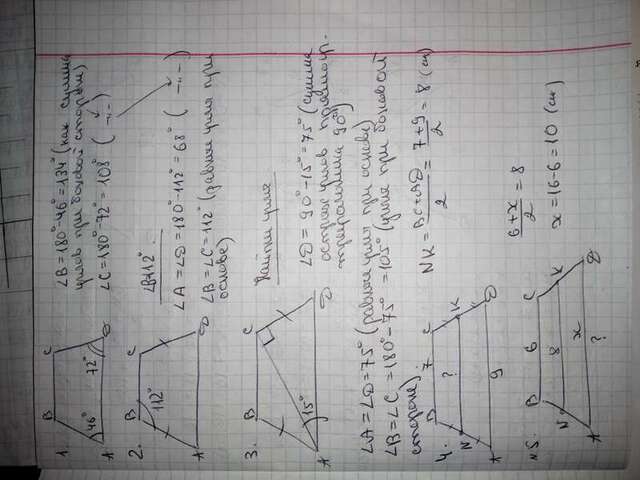 1.
B C
46° 72°
A D
∠B = 180° - 46° = 134° (как сумма
углов при боковой стороне)
∠C = 180° - 72° = 108° ( —"— )
2.
B C
112°
A D
∠B=112°
∠A = ∠D = 180° - 112° = 68° ( —"— )
∠B = ∠C = 112° (равные углы при
основе)
3.
B C
15°
A D
Найти углы
∠D = 90° - 15° = 75° (сумма
острых углов прямоуг.
треугольника 90°)
∠A = ∠D = 75° (равные углы при основе)
∠B = ∠C = 180° - 75° = 105° (углы при боковой
стороне).
4.
B 7 C
N ? K
A 9 D
NK = BC + AD / 2 = 7 + 9 / 2 = 8 (см)
№5.
B 6 C
N 8 K
x
A ? D
6 + x / 2 = 8
x = 16 - 6 = 10 (см)